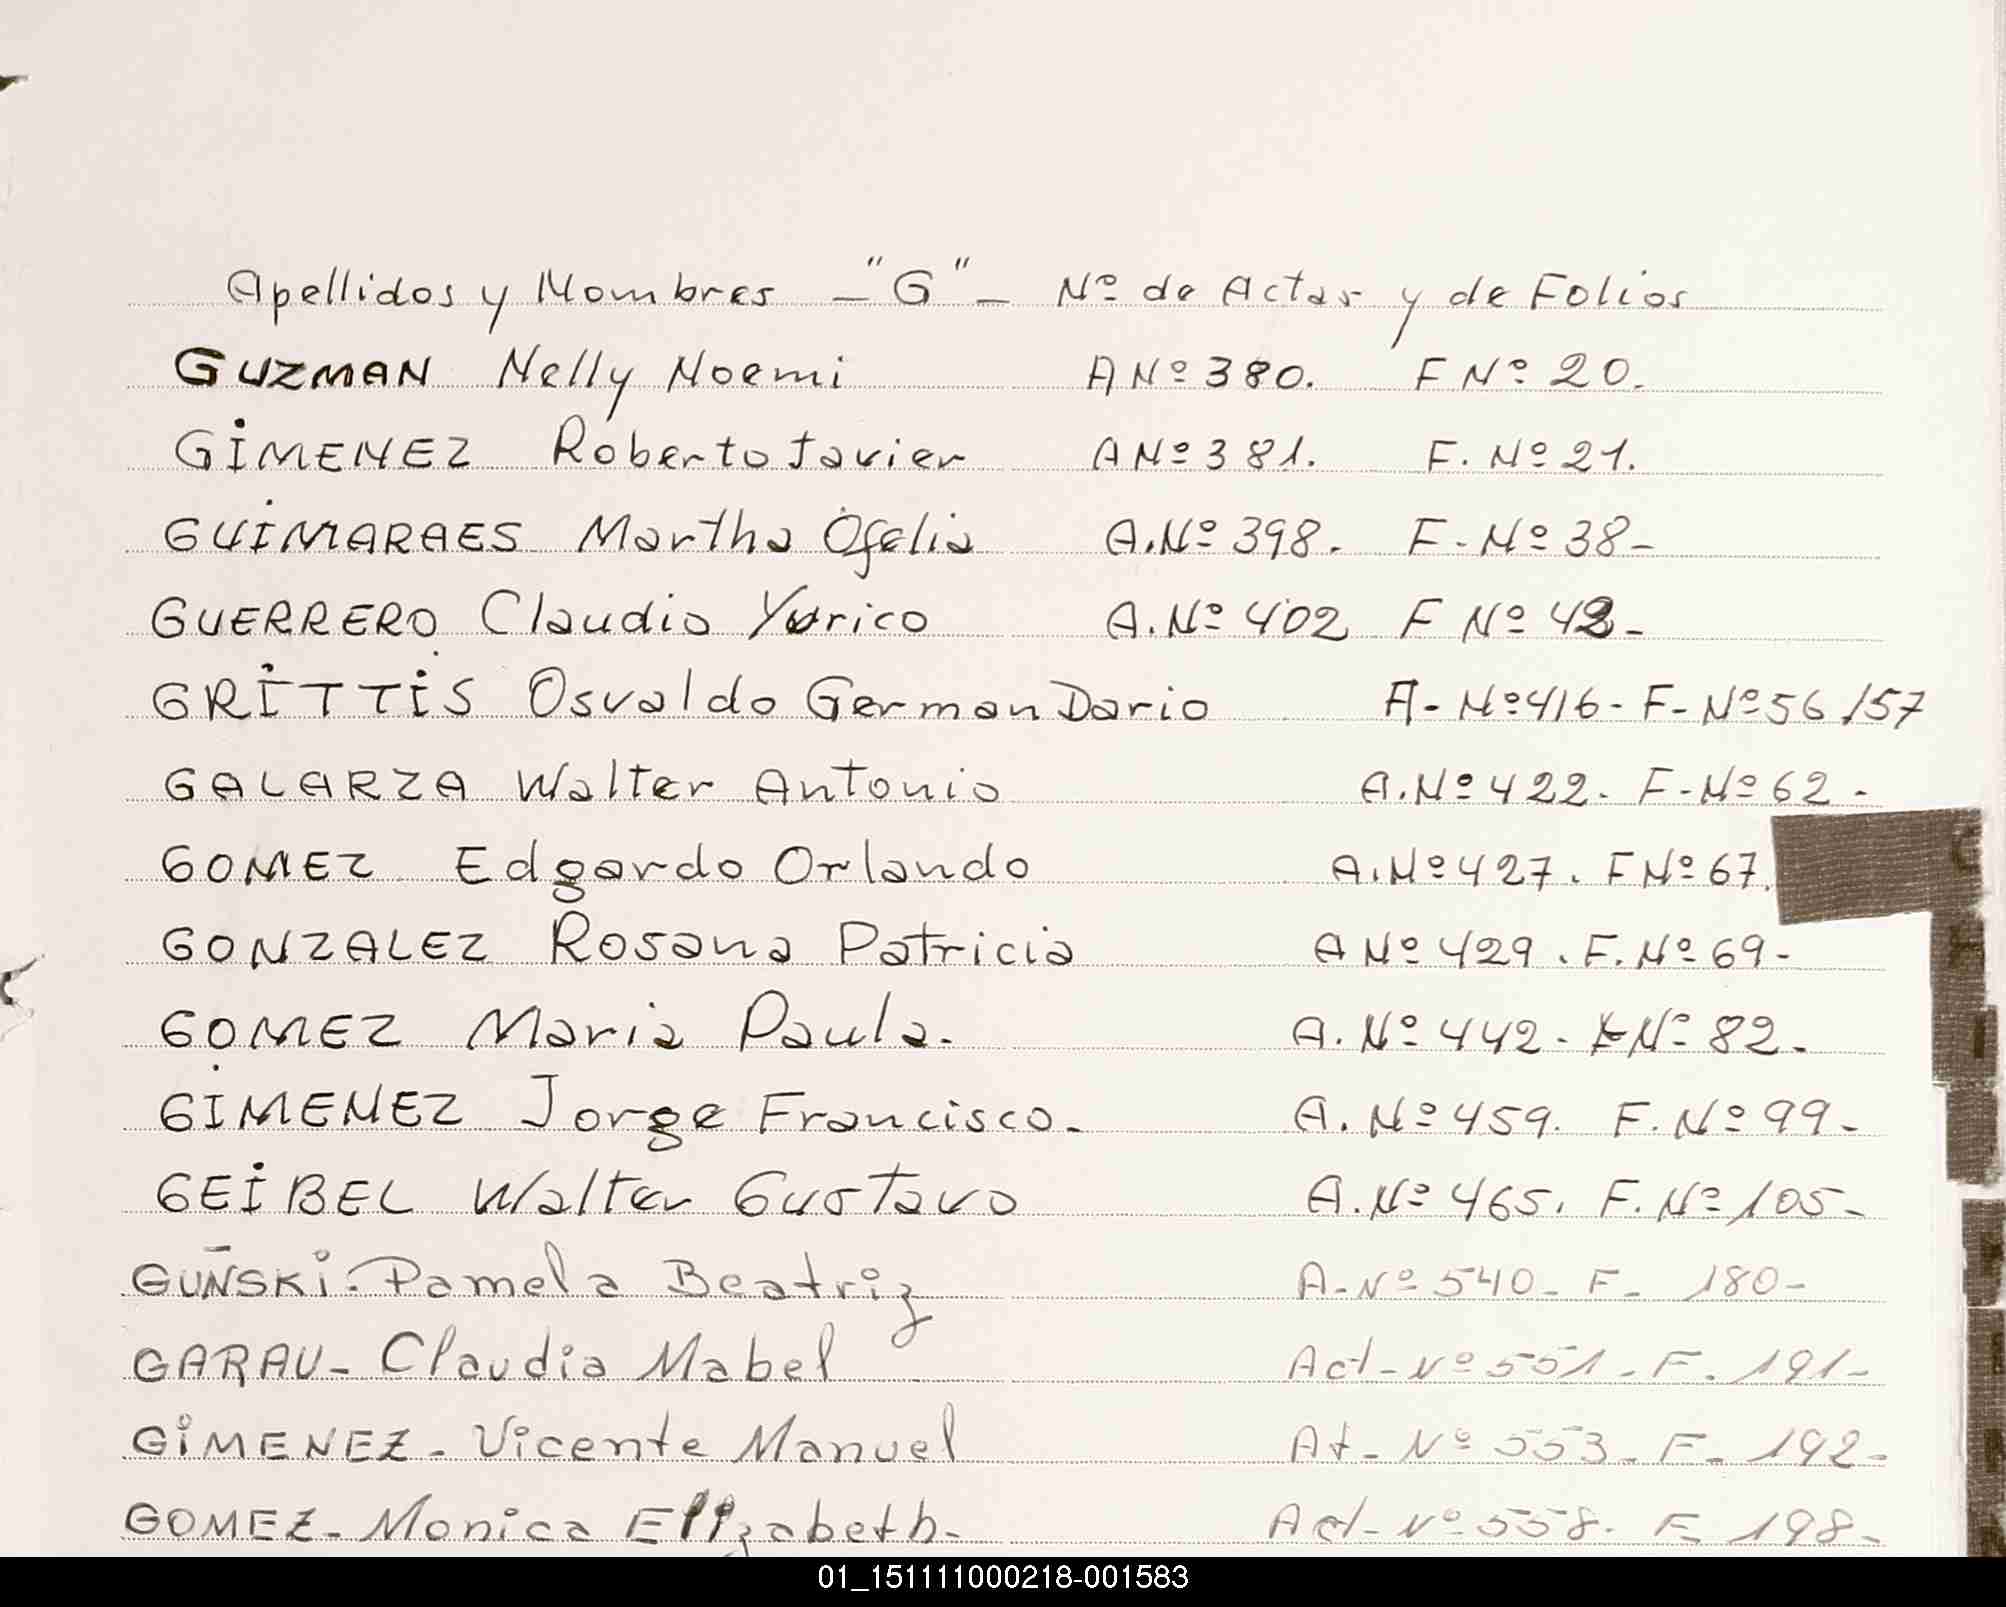 Apellidos y Nombres - "G" - Nº de Actas y de Folios
GUZMAN Nelly Noemi A Nº 380. F Nº 20.
GIMENEZ Roberto Javier A Nº 381. F. Nº 21.
GUIMARAES Martha Ofelia A. Nº 398. F. Nº 38-
GUERRERO Claudio Yurico A. Nº 402 F Nº 42-
GRITTIS Osvaldo German Dario A- Nº 416- F- Nº 56/57
GALARZA Walter Antonio A. Nº 422. F- Nº 62-
GOMEZ Edgardo Orlando A. Nº 427. F Nº 67.
GONZALEZ Rosana Patricia A Nº 429. F. Nº 69-
GOMEZ Maria Paula. A. Nº 442- F Nº 82.
GIMENEZ Jorge Francisco. A. Nº 459. F. Nº 99-
GEIBEL Walter Gustavo A. Nº 465. F. Nº 105-
GUÑSKI. Pamela Beatriz A- Nº 540- F- 180-
GARAU- Claudia Mabel Act- Nº 551- F. 191-
GIMENEZ- Vicente Manuel At- Nº 553- F- 192-
GOMEZ- Monica Elizabeth- Act- Nº 558. F- 198-
01_151111000218-001583